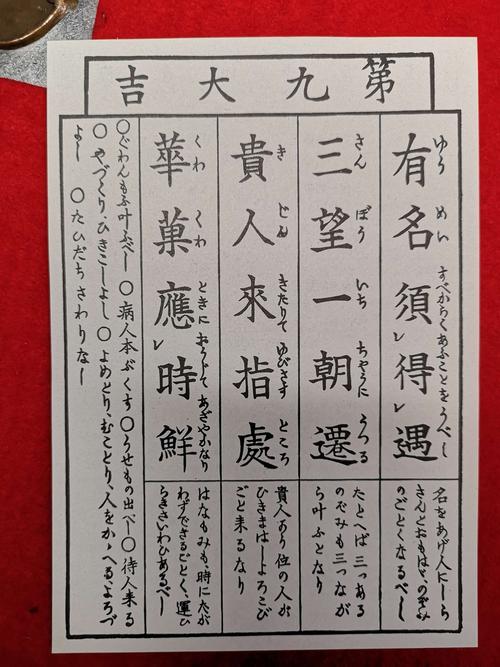 第九大吉
有名須得遇
ゆう めい すべからくあふことをうべし
名をあげ人にしら
れんとおもはゞ、のぞみ
のごとくなるべし
三望一朝遷
さん ぼう いち ちやうに うつる
たとへば三つある
のぞみも三つなが
ら叶ふとなり
貴人來指處
き じん きたりて ゆびさす ところ
貴人より位の人が
ひきまはしよろこび
ごと来るなり
華菓應時鮮
くわ くわ ときに おうじて あざやかなり
はなもみも時にたが
わずでさるごとく、運ひ
らきさいわひあるべし
○ぐわんもふ叶ふべし ○病人本ぶくす ○うせもの出べし ○待人来る
○やづくり、ひきこしよし ○よめとり、むことり、人をかゝへるよろづ
よし ○たひだちさわりなし